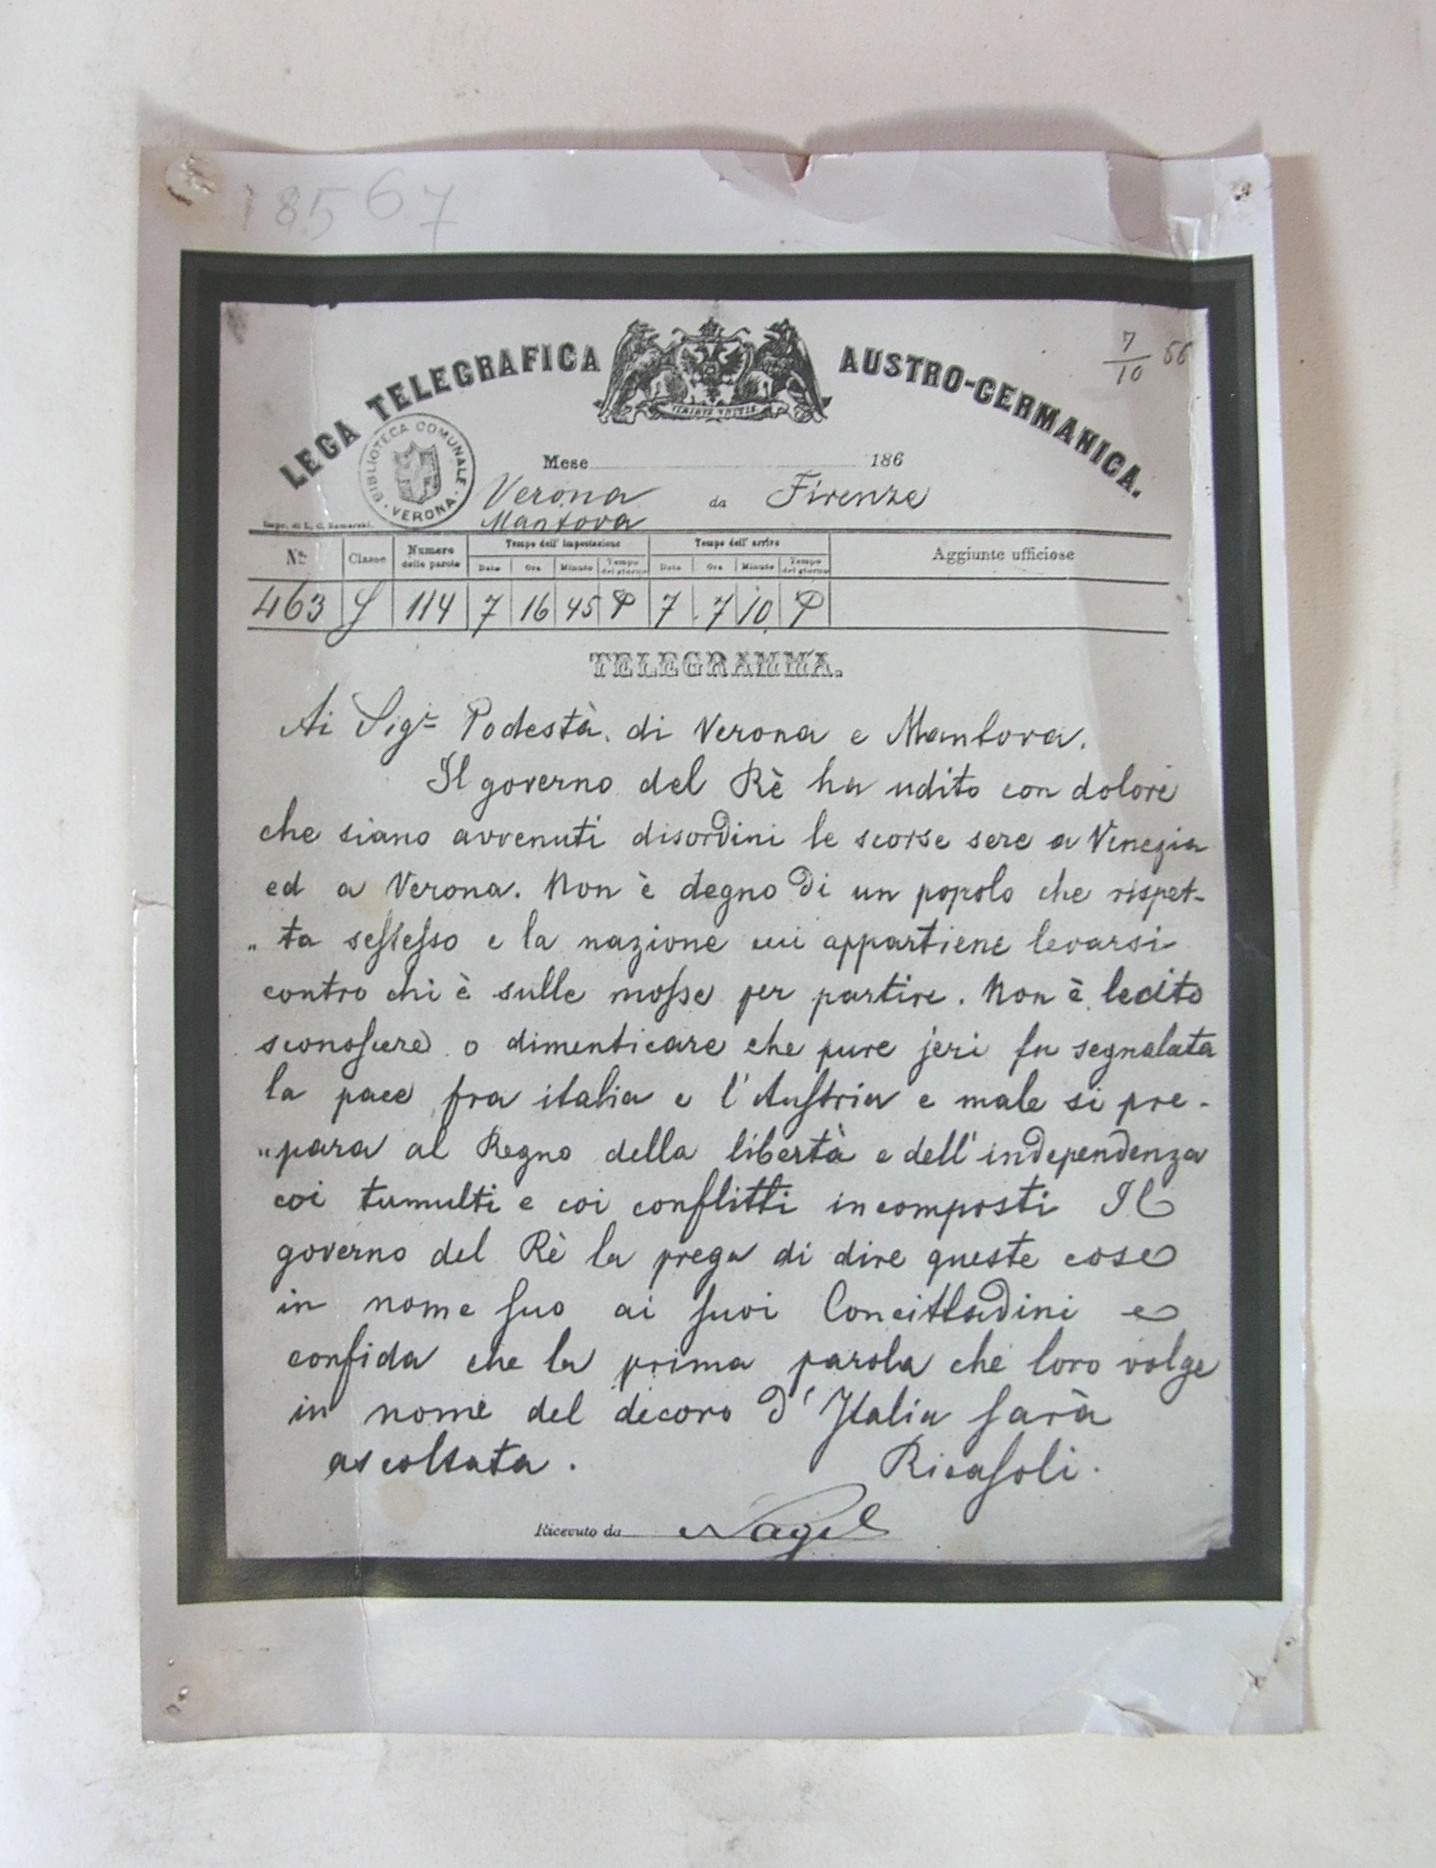 18567
LEGA TELEGRAFICA AUSTRO-GERMANICA.
7/10 66
VIRIBUS UNITIS
BIBLIOTECA COMUNALE · VERONA ·
Mese 186
Verona da Firenze
Mantova
Nº Classe Numero delle parole Tempo dell' impostazione Tempo dell' arrivo Aggiunte ufficiose
Data Ora Minuto Tempo del giorno Data Ora Minuto Tempo del giorno
463 114 7 16 45 P 7 7 10 P
TELEGRAMMA.
Ai Sigr Podestà di Verona e Mantova.
Il governo del Rè ha udito con dolore
che siano avvenuti disordini le scorse sere a Venezia
ed a Verona. Non è degno di un popolo che rispet-
„ ta sestesso e la nazione cui appartiene levarsi
contro chi è sulle mosse per partire. Non è lecito
sconoscere o dimenticare che pure jeri fu segnalata
la pace fra italia e l'Austria e male si pre-
„ para al Regno della libertà e dell'independenza
coi tumulti e coi conflitti incomposti Il
governo del Rè la prega di dire queste cose
in nome suo ai suoi Concittadini e
confida che la prima parola che loro volge
in nome del decoro d'Italia sarà
ascoltata. Ricasoli.
Ricevuto da Nagel